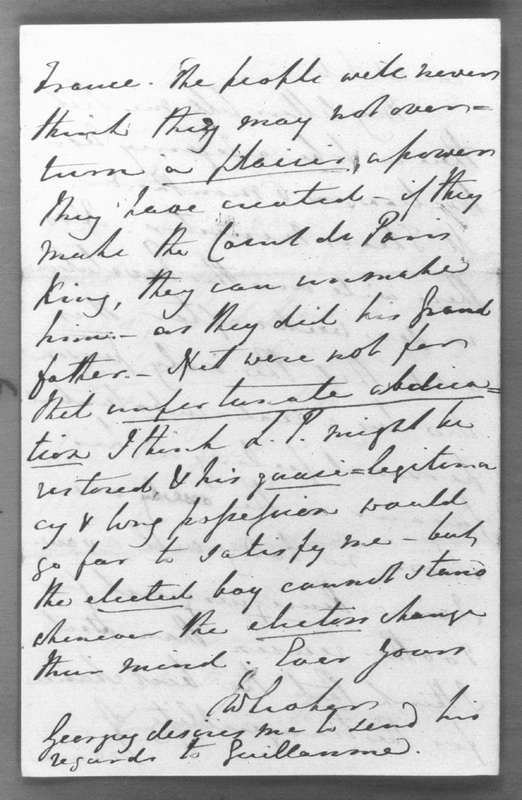 France. The people will never
think they may not over=
turn a plaisir, a power
they have created – if they
make the Comte de Paris
King, they can unmake
him – as they did his Grand
father. – Yet were not for
that unfortunate abdica=
tion I think L. P. might be
restored & his quasi=legitima
cy & long possession would
go far to satisfy me – but
the elected boy cannot stand
whenever the electors change
their mind. Ever yours
Georgey desires me to send his
regards to Guillaume.